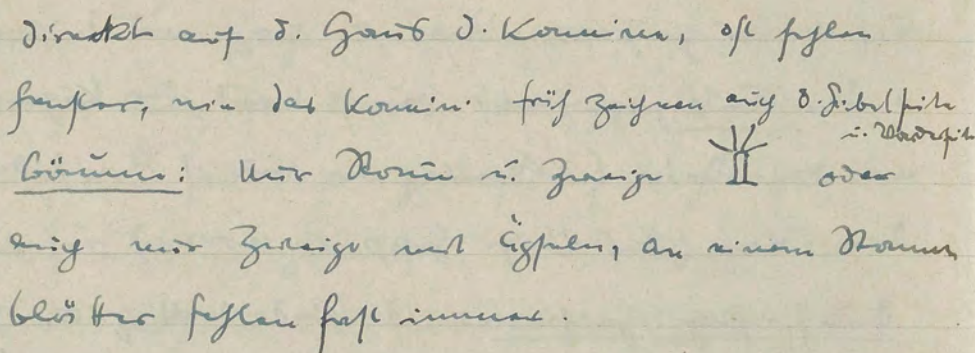 direkt auf d. Haus d. Kamine, oft fehlen
Fenster, nie das Kamin. früh zeichnen auch d. Giebelseite
u. Vorderseite
Bäume: Nur Stamm u. Zweige oder
auch nur Zweige mit Äpfeln, an einem Stamm
blätter fehlen fast immer.